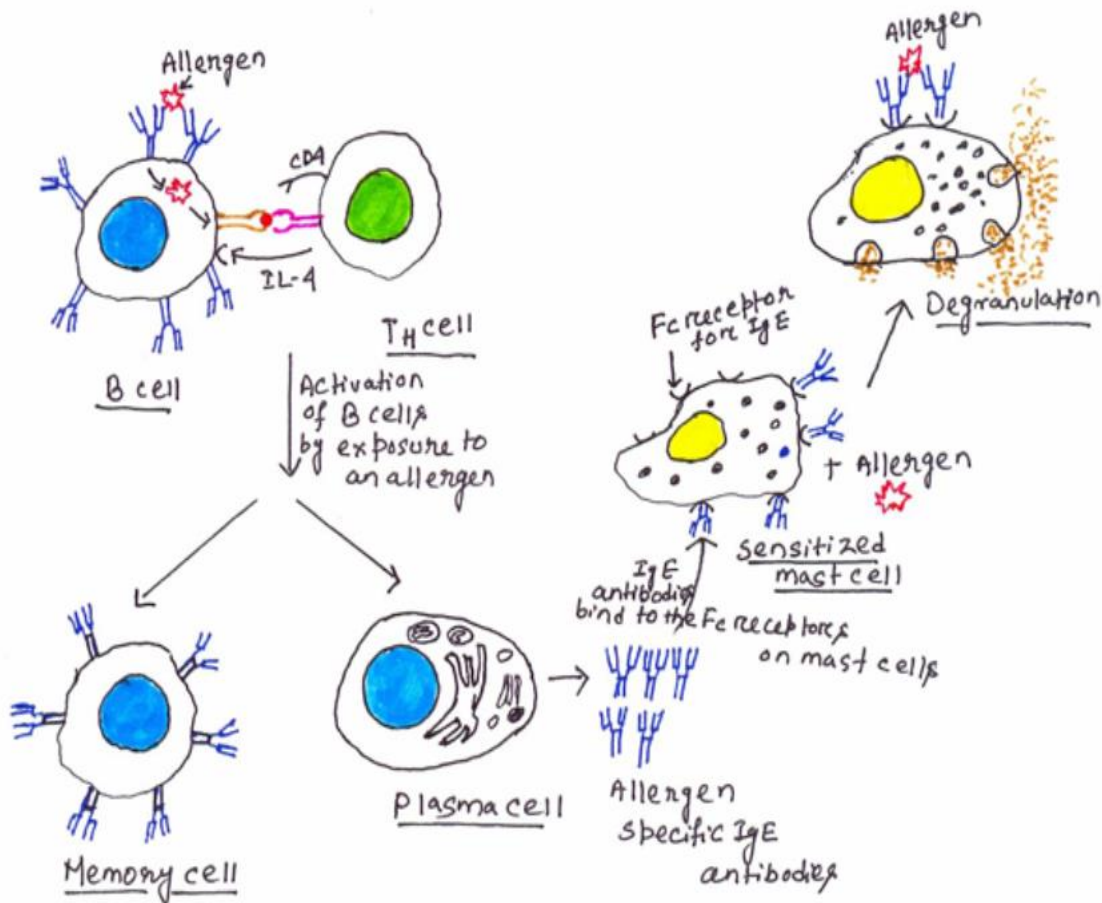 Allergen
CD4
IL-4
TH cell
B cell
Activation
of B cells
by exposure to
an allergen
Memory cell
Plasma cell
Allergen
specific IgE
antibodies
IgE
antibodies
bind to the Fc receptors
on mast cells
Fc receptor
for IgE
+ Allergen
Sensitized
mast cell
Allergen
Degranulation